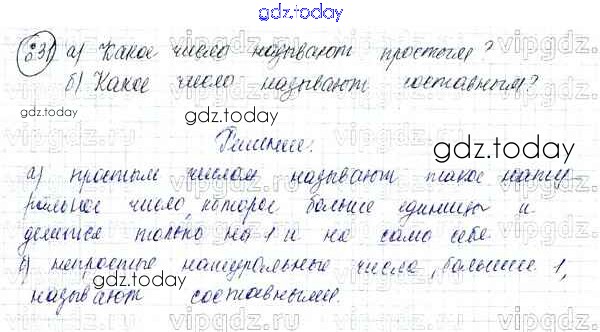 gdz.today
631 а) Какое число называют простым?
б) Какое число называют составным?
gdz.today
Решение.
а) простым числом называют такое нату-
ральное число, которое больше единицы и
делится только на 1 и на само себе.
б) непростые натуральные числа, больше 1,
называют составными.
gdz.today
gdz.today